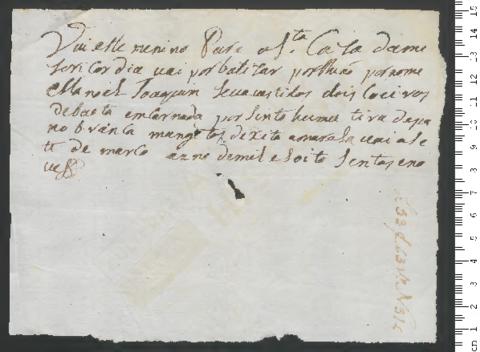 Vai este menino Para a S.ta Casa dame
zericordia vai por batizar porlheão por nome
Manoel Joaquim Leva vestidos dois coeiros
debaeta emcarnada por sinto huma tira depa
no branca mangotes de xita amarela vai a se
te de março anno demil e soito sentos eno
ve